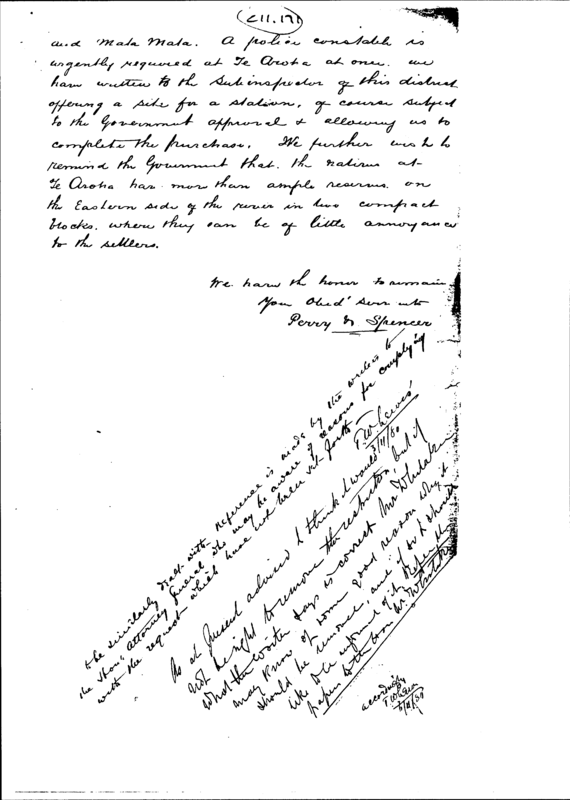 C11.171
and Mata Mata. A police constable is
urgently required at Te Aroha at once. we
have written to the Subinspector of this district
offering a site for a station, of course subject
to the Government approval & allowing us to
complete the purchase. We further wish to
remind the Government that the natives at
Te Aroha have more than ample reserves on
the Eastern side of the river in two compact
blocks, where they can be of little annoyance
to the settlers.
We have the honor to remain
Your Obedt Servants
Perry & Spencer
be similarly dealt with. Reference is made by the writers to
the Hon. Attorney General who may be aware of reasons for complying
with the request which have not been set forth
T.W. Lewis
5/11/80
As at present advised I think it would
not be right to remove the restriction, but if
what the writer says is correct Mr Whitaker
may know of some good reason why it
should be removed, and if so I should
like to be informed of it. Refer the
papers to the Hon Mr Whitaker
accordingly
T.W. Lewis